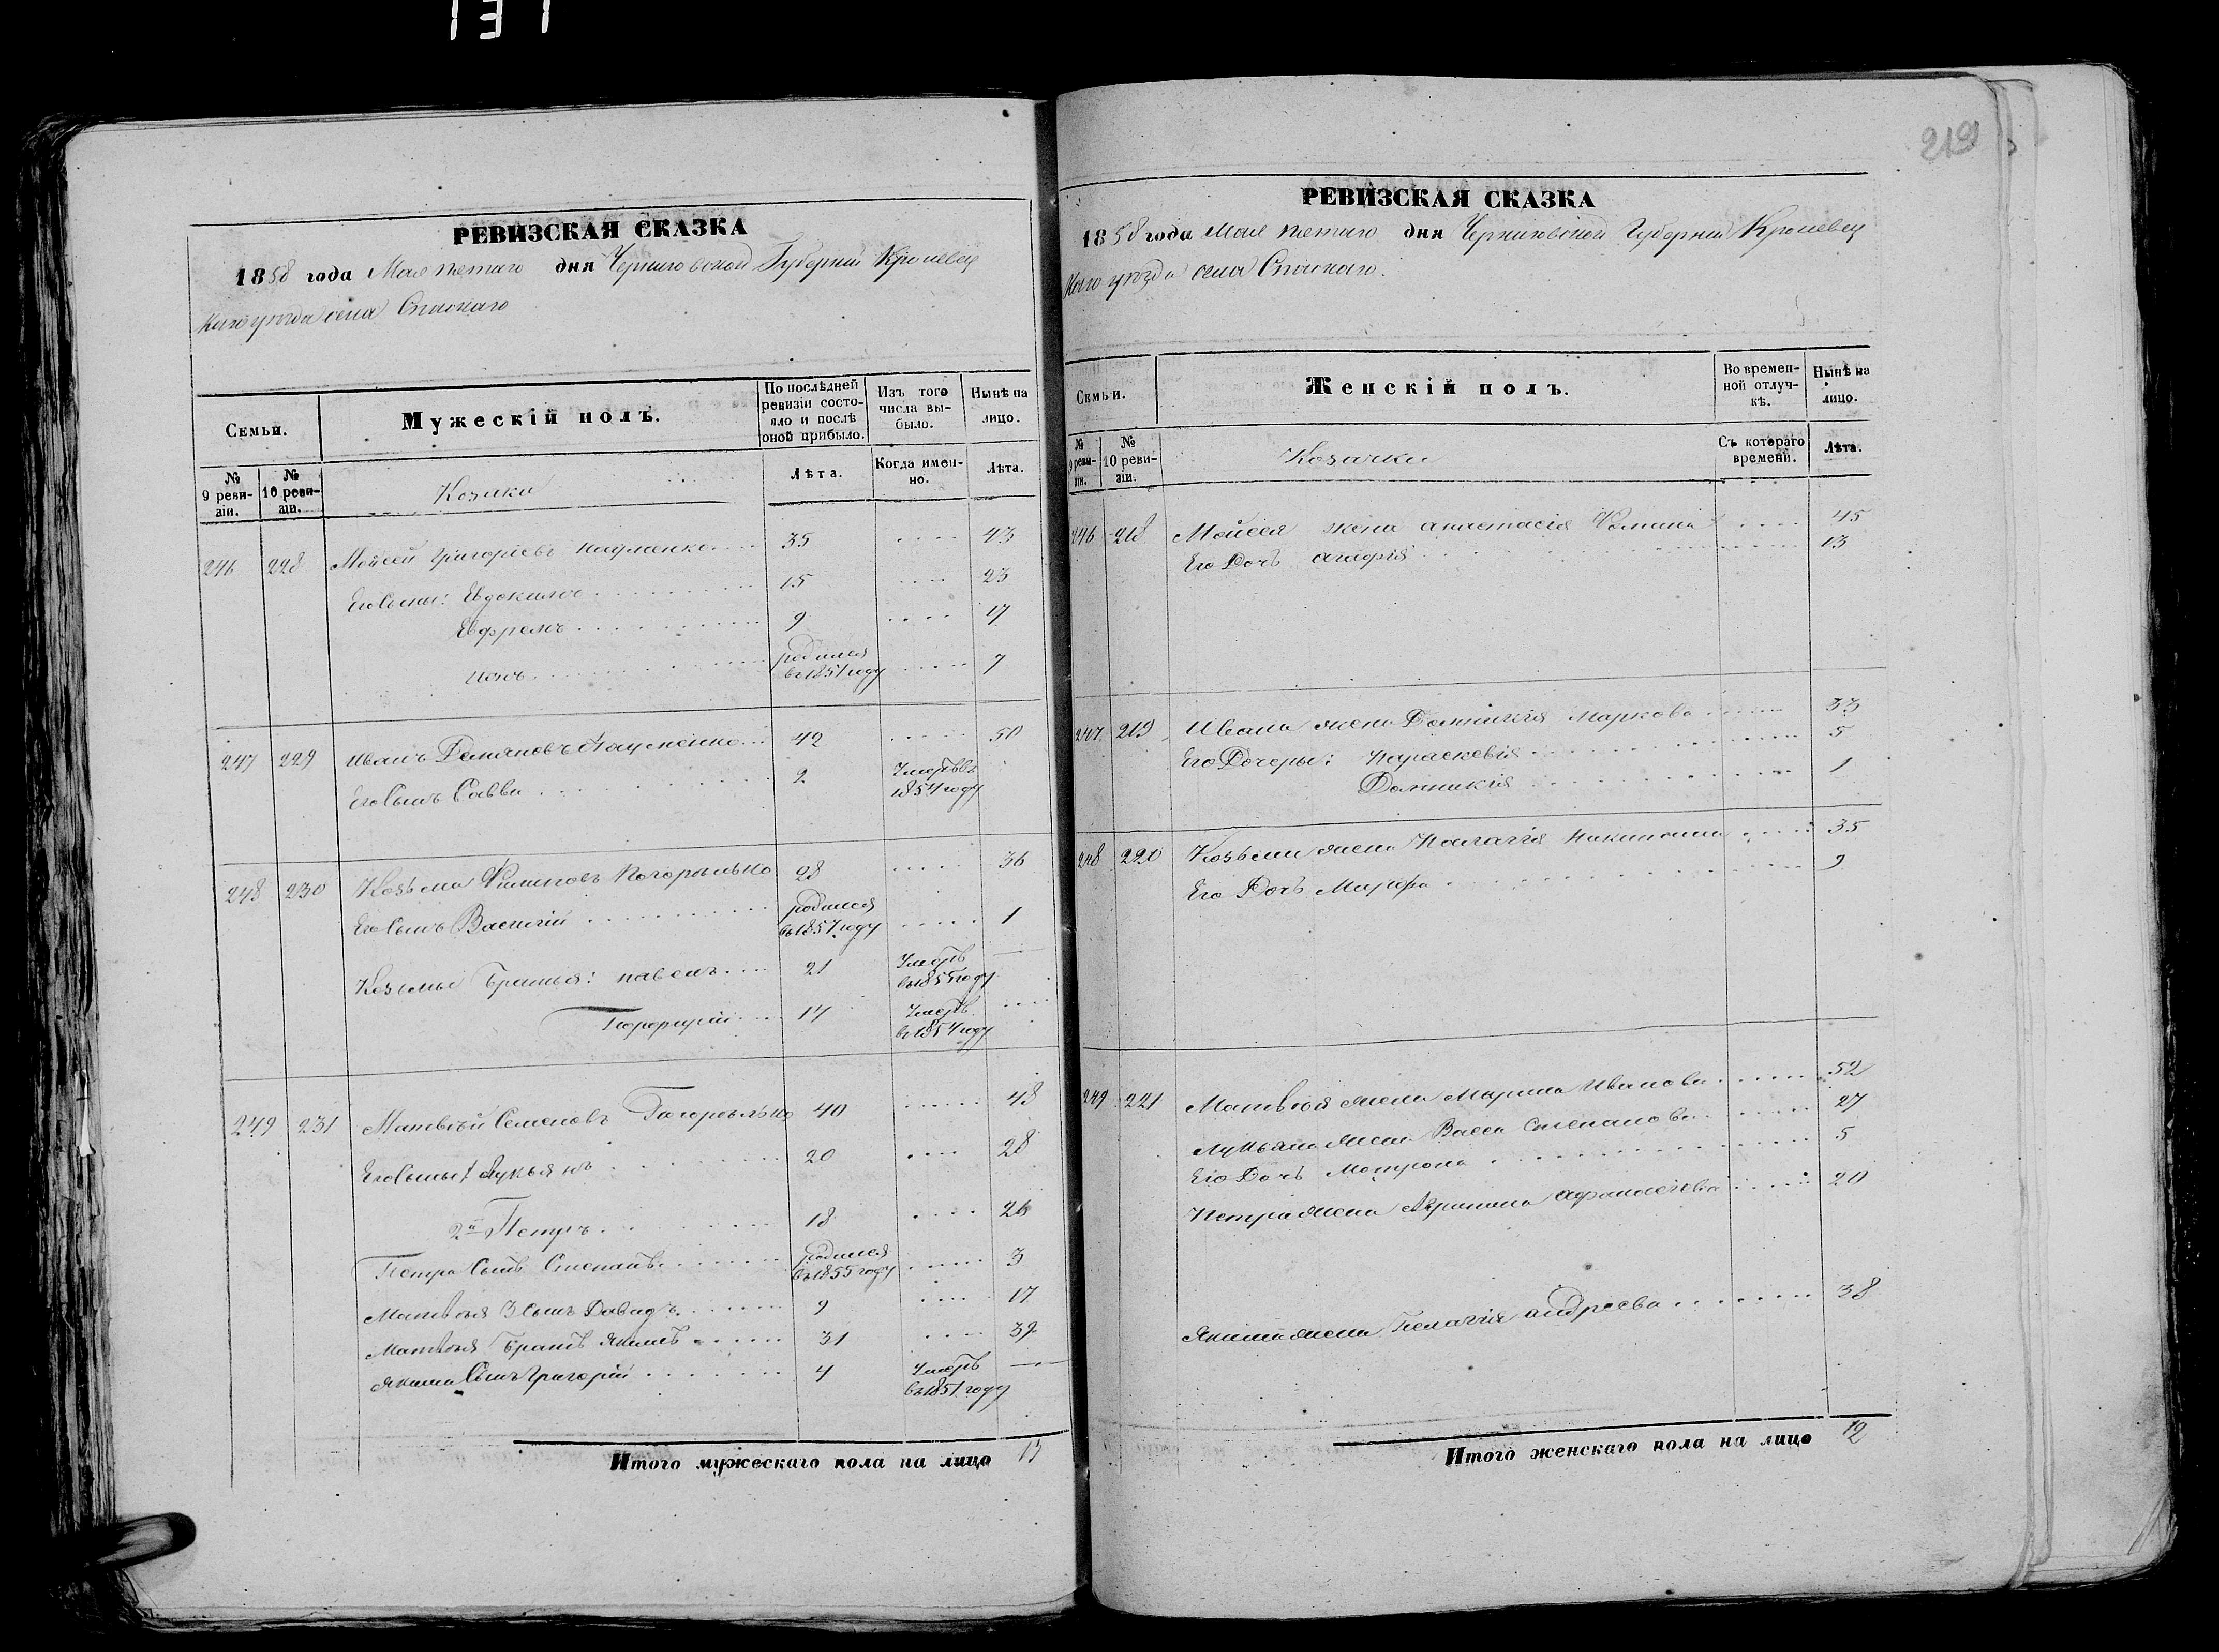 131
РЕВИЗСКАЯ СКАЗКА
1858 года Мая пятаго дня Черниговской Губерніи Кролевец
каго уѣзда села Спаскаго
Семьи.
Мужескій полъ.
По послѣдней ревизіи состояло и послѣ оной прибыло.
Изъ того числа выбыло.
Нынѣ на лицо.
№ 9 ревизіи.
№ 10 ревизіи.
Козаки
Лѣта.
Когда именно.
Лѣта.
246 228 Мойсей Григорьевъ Науменко 35 43
Его Сыны: Евдокимъ 15 23
Ефремъ 9 17
родился въ 1851 году 7
247 229 Иванъ Демяновъ Науменко 42 50
Его Сынъ Савва 2 Умеръ въ 1854 году
248 230 Козьма Филиповъ Погорѣлько 28 36
Его Сынъ Василій родился въ 1857 году 1
Козьмы Братья: Павелъ 21 Умеръ въ 1855 году
Порфирій 14 Умеръ въ 1854 году
249 231 Матвѣй Семеновъ Погорѣлько 40 48
Его Сыны 1 Лукьянъ 20 28
2й Петръ 18 26
Петра Сынъ Степанъ родился въ 1855 году 3
Матвѣя 3 Сынъ Давидъ 9 17
Матвѣя Братъ Якимъ 31 39
Якима Сынъ Григорій 4 Умеръ въ 1851 году
Итого мужескаго пола на лицо 13
219
РЕВИЗСКАЯ СКАЗКА
1858 года Мая пятаго дня Черниговской Губерніи Кролевец
каго уѣзда села Спаскаго.
Семьи.
Женскій полъ.
Во временной отлучкѣ.
Нынѣ на лицо.
№ 9 ревизіи.
№ 10 ревизіи.
Козачки
Съ котораго времени.
Лѣта.
246 218 Мойсея жена Анастасія Фомина 45
Его Дочь Агафія 13
247 219 Ивана жена Домникія Маркова 33
Его Дочери: Параскевія 5
Домникія 1
248 220 Козьмы жена Пелагія Никитина 35
Его Дочь Марфа 9
249 221 Матвѣя жена Марина Иванова 52
Лукьяна жена Васса Степанова 27
Его Дочь Матрона 5
Петра жена Афанасіева 20
Якима жена Пелагія Андреева 38
Итого женскаго пола на лицо 12